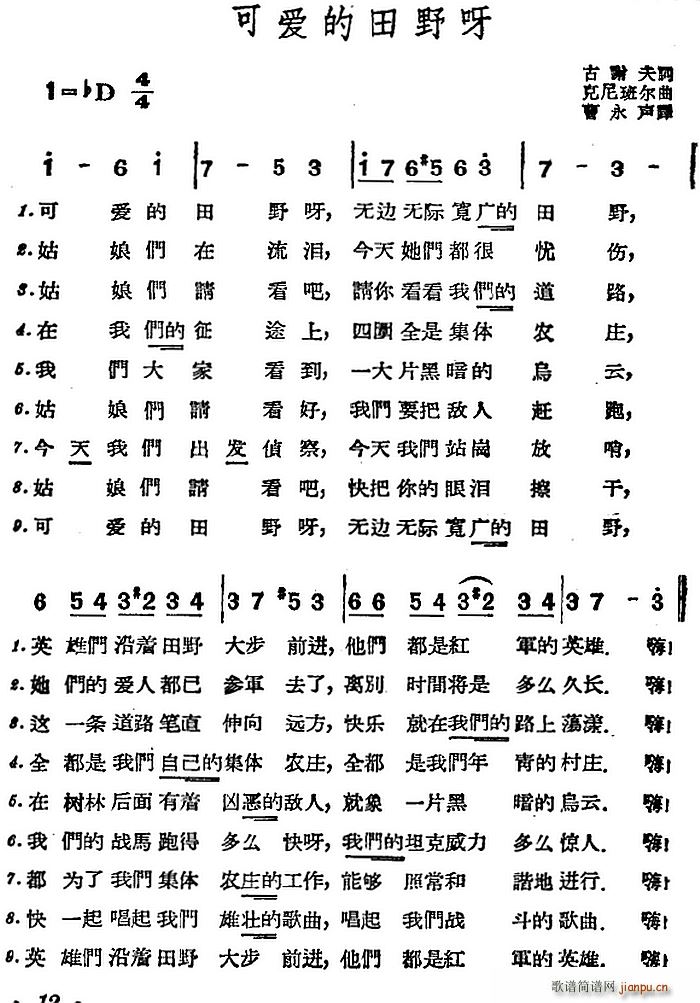 可爱的田野呀
1=♭D 4/4
古謝夫詞
克尼班尔曲
曹永声譯
i - 6 i | 7 - 5 3 | i 7 6 #5 6 3 | 7 - 3 - |
1.可 爱的 田 野呀, 无边无际寬广的 田 野,
2.姑 娘們 在 流泪, 今天她們都很 忧 伤,
3.姑 娘們 請 看吧, 請你看看我們的 道 路,
4.在 我們的征 途上, 四圍全是集体 农 庄,
5.我 們大 家 看到, 一大片黑暗的 烏 云,
6.姑 娘們 請 看好, 我們要把敌人 赶 跑,
7.今天我們 出发偵察, 今天我們站崗 放 哨,
8.姑 娘們 請 看吧, 快把你的眼泪 擦 干,
9.可 爱的 田 野呀, 无边无际寬广的 田 野,
6 5 4 3 #2 3 4 | 3 7 #5 3 | 6 6 5 4 3 #2 3 4 | 3 7 - 3 ‖
1.英 雄們 沿着 田野 大步 前进, 他們 都是 紅 軍的 英雄. 嗨!
2.她 們的 爱人 都已 参軍 去了, 离別 时間 将是 多么 久长. 嗨!
3.这 一条 道路 笔直 伸向 远方, 快乐 就在 我們的 路上 蕩漾. 嗨!
4.全 都是 我們 自己的 集体 农庄, 全都 是我 們年 青的 村庄. 嗨!
5.在 树林 后面 有着 凶恶的 敌人, 就象 一片 黑 暗的 烏云. 嗨!
6.我 們的 战馬 跑得 多么 快呀, 我們的 坦克 威力 多么 惊人. 嗨!
7.都 为了 我們 集体 农庄的 工作, 能够 照常 和 諧地 进行. 嗨!
8.快 一起 唱起 我們 雄壮的 歌曲, 唱起 我們 战 斗的 歌曲. 嗨!
9.英 雄們 沿着 田野 大步 前进, 他們 都是 紅 軍的 英雄. 嗨!
• 12 •
歌谱简谱网
jianpu.cn